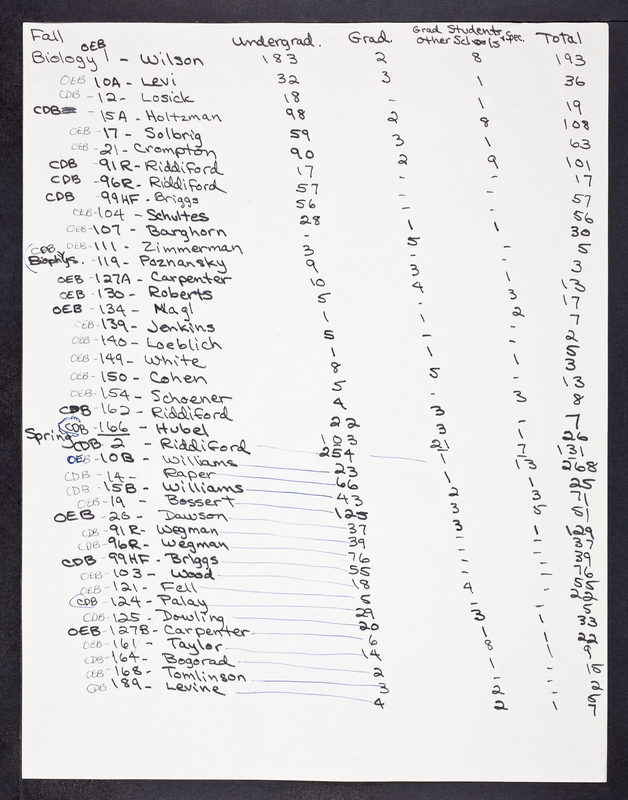 Fall
Undergrad. Grad. Grad Students Other Schools + Spec. Total
OEB
Biology 1 - Wilson 183 2 8 193
OEB 10A - Levi 32 3 1 36
CDB -12- Losick 18 - 1 19
CDB - 15A - Holtzman 98 2 8 108
OEB -17 - Solbrig 59 3 1 63
OEB -21- Crompton 90 2 9 101
CDB - 91R - Riddiford 17 - - 17
CDB - 96R - Riddiford 57 - - 57
CDB - 99HF - Briggs 56 - - 56
OEB -104 - Schultes 28 1 1 30
OEB -107 - Barghorn - 5 - 5
(CDB, OEB -111 - Zimmerman 3 - - 3
Biophys. -119 - Poznansky 9 3 1 13
OEB - 127A - Carpenter 10 4 3 17
OEB -130 - Roberts 5 - 2 7
OEB -134 - Nagl 1 1 - 2
OEB -139 - Jenkins 5 - - 5
OEB -140 - Loeblich 1 1 1 3
OEB -149 - White 8 5 - 13
OEB -150 - Cohen 5 - 3 8
OEB -154 - Schoener 4 3 - 7
CDB - 162 - Riddiford 22 3 1 26
CDB -166 - Hubel 103 21 7 131
Spring CDB 2 - Riddiford 254 1 13 268
OEB - 10B - Williams 23 1 1 25
CDB - 14 - Raper 66 2 3 71
CDB - 15B - Williams 43 3 5 51
OEB -19 - Bossert 125 3 1 129
OEB - 26 - Dawson 37 - - 37
CDB - 91R - Wegman 39 - - 39
CDB - 96R - Wegman 76 - - 76
CDB - 99HF - Briggs 55 - - 55
OEB -103 - Wood 18 4 - 22
OEB -121 - Fell 5 - - 5
CDB -124 - Palay 29 3 1 33
CDB - 125 - Dowling 20 1 1 22
OEB - 127B - Carpenter 6 1 9
OEB -161 - Taylor 14 1 - 15
CDB - 164 - Bogorad 2 - - 2
OEB -168 - Tomlinson 3 2 - 5
CDB 189 - Levine 4 2 1 7